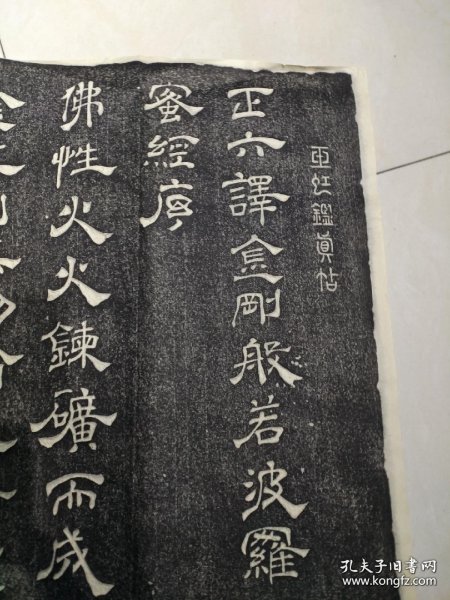 鑑眞帖
正六譯金剛般若波羅
蜜經序
佛性火火鍊礦而成
孔夫子旧书网
www.kongfz.com